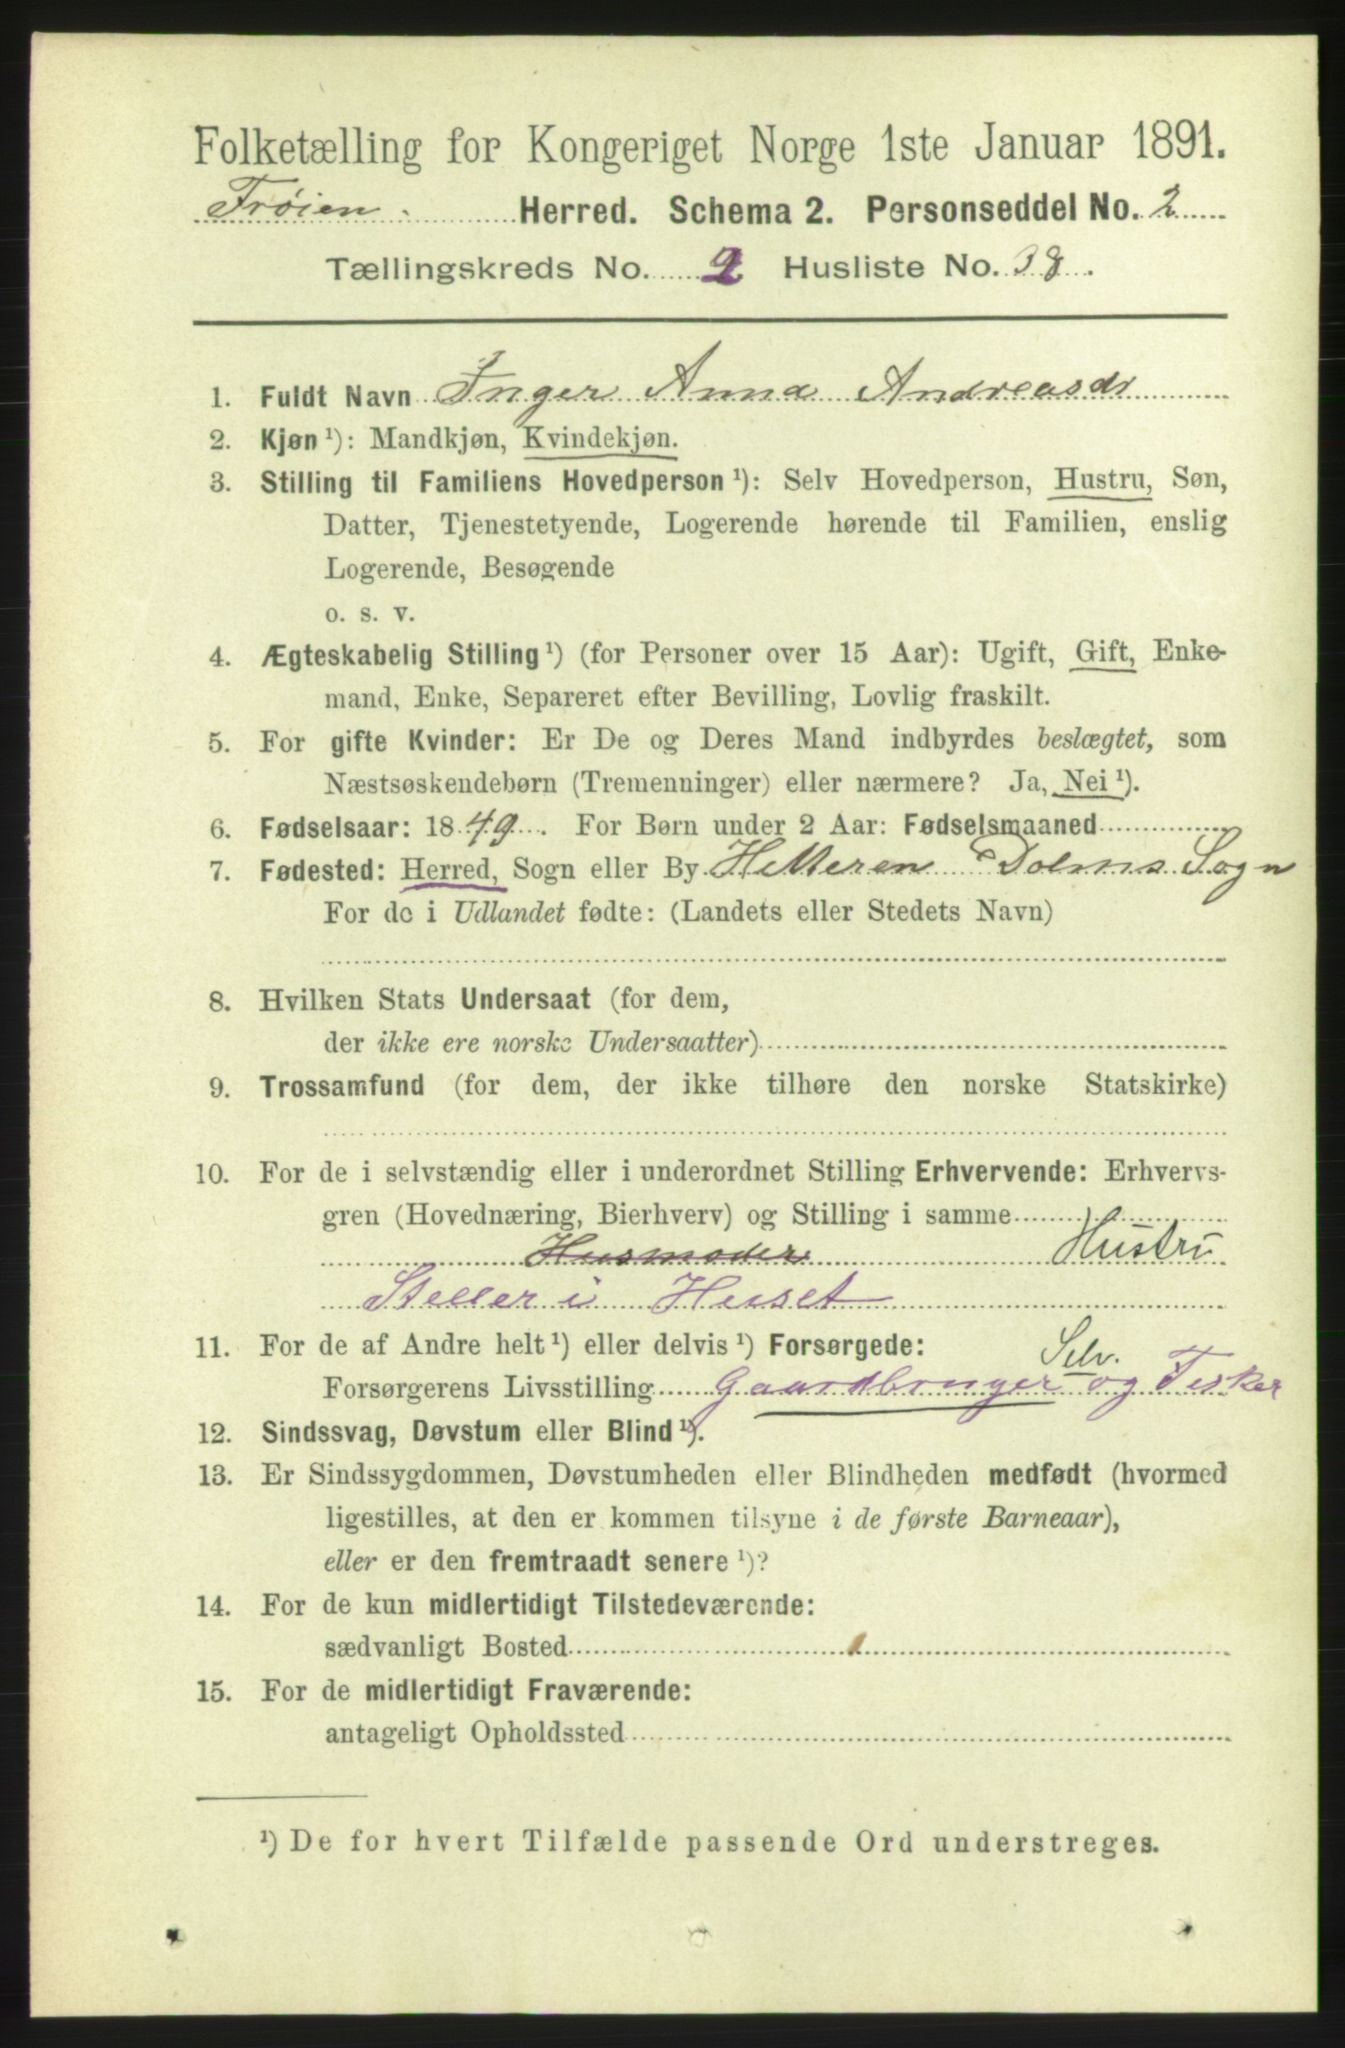 Folketælling for Kongeriget Norge 1ste Januar 1891.
Frøien. Herred. Schema 2. Personseddel No. 2
Tællingskreds No. 2 Husliste No. 38.
1. Fuldt Navn Inger Anna Andreasdr
2. Kjøn ¹): Mandkjøn, Kvindekjøn.
3. Stilling til Familiens Hovedperson ¹): Selv Hovedperson, Hustru, Søn,
Datter, Tjenestetyende, Logerende hørende til Familien, enslig
Logerende, Besøgende
o. s. v.
4. Ægteskabelig Stilling ¹) (for Personer over 15 Aar): Ugift, Gift, Enke-
mand, Enke, Separeret efter Bevilling, Lovlig fraskilt.
5. For gifte Kvinder: Er De og Deres Mand indbyrdes beslægtet, som
Næstsøskendebørn (Tremenninger) eller nærmere? Ja, Nei ¹).
6. Fødselsaar: 1849. For Børn under 2 Aar: Fødselsmaaned
7. Fødested: Herred, Sogn eller By Hitteren Dolms Sogn
For de i Udlandet fødte: (Landets eller Stedets Navn)
8. Hvilken Stats Undersaat (for dem,
der ikke ere norske Undersaatter)
9. Trossamfund (for dem, der ikke tilhøre den norske Statskirke)
10. For de i selvstændig eller i underordnet Stilling Erhvervende: Erhvervs-
gren (Hovednæring, Bierhverv) og Stilling i samme
Husmoder Hustru
Steller i Huset
11. For de af Andre helt ¹) eller delvis ¹) Forsørgede:
Selv.
Forsørgerens Livsstilling Gaardbruger og Fisker
12. Sindssvag, Døvstum eller Blind ¹).
13. Er Sindssygdommen, Døvstumheden eller Blindheden medfødt (hvormed
ligestilles, at den er kommen tilsyne i de første Barneaar),
eller er den fremtraadt senere ¹)?
14. For de kun midlertidigt Tilstedeværende:
sædvanligt Bosted
15. For de midlertidigt Fraværende:
antageligt Opholdssted
¹) De for hvert Tilfælde passende Ord understreges.